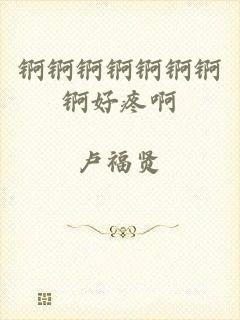 锕锕锕锕锕锕锕
锕好疼啊
卢福贤